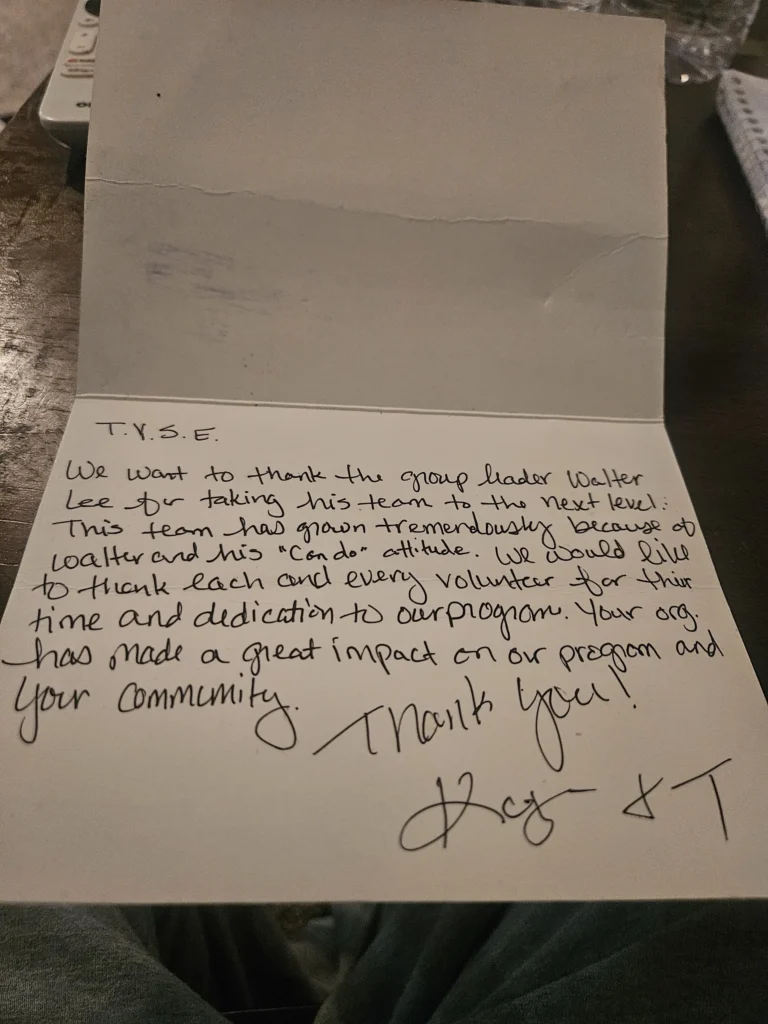 T.Y.S.E.
We want to thank the group leader Walter
Lee for taking his team to the next level.
This team has grown tremendously because of
Walter and his "Can do" attitude. We would like
to thank each and every volunteer for their
time and dedication to our program. Your org.
has made a great impact on our program and
your community.
Thank you!
& T